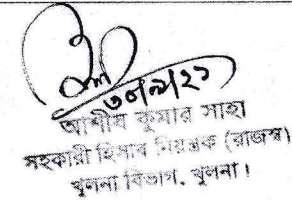 ৩০/৯/২১
আশীষ কুমার সাহা
সহকারী হিসাব নিয়ন্ত্রক (রাজস্ব)
খুলনা বিভাগ, খুলনা।